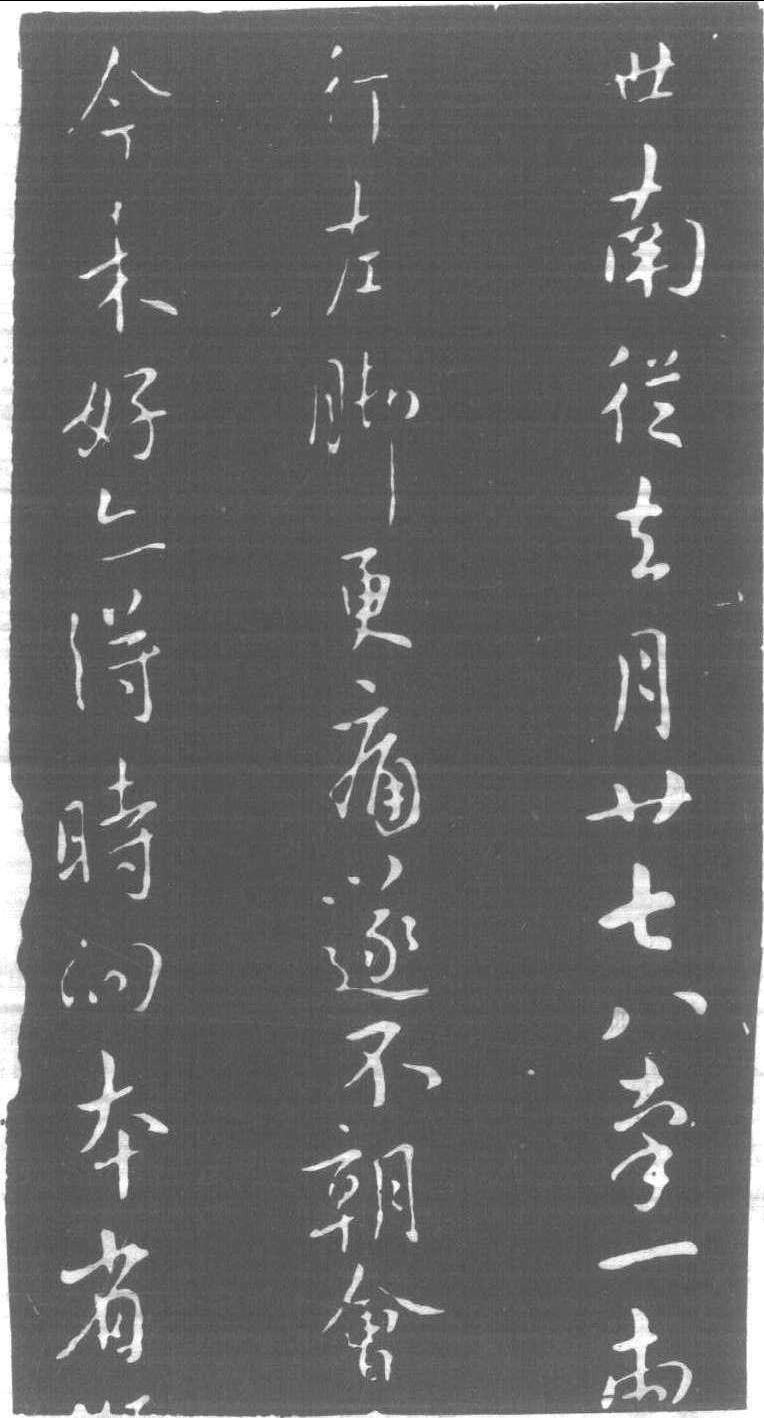 世南從去月廿七八率一兩
行左脚更痛遂不朝會
今未好亦得時向本省